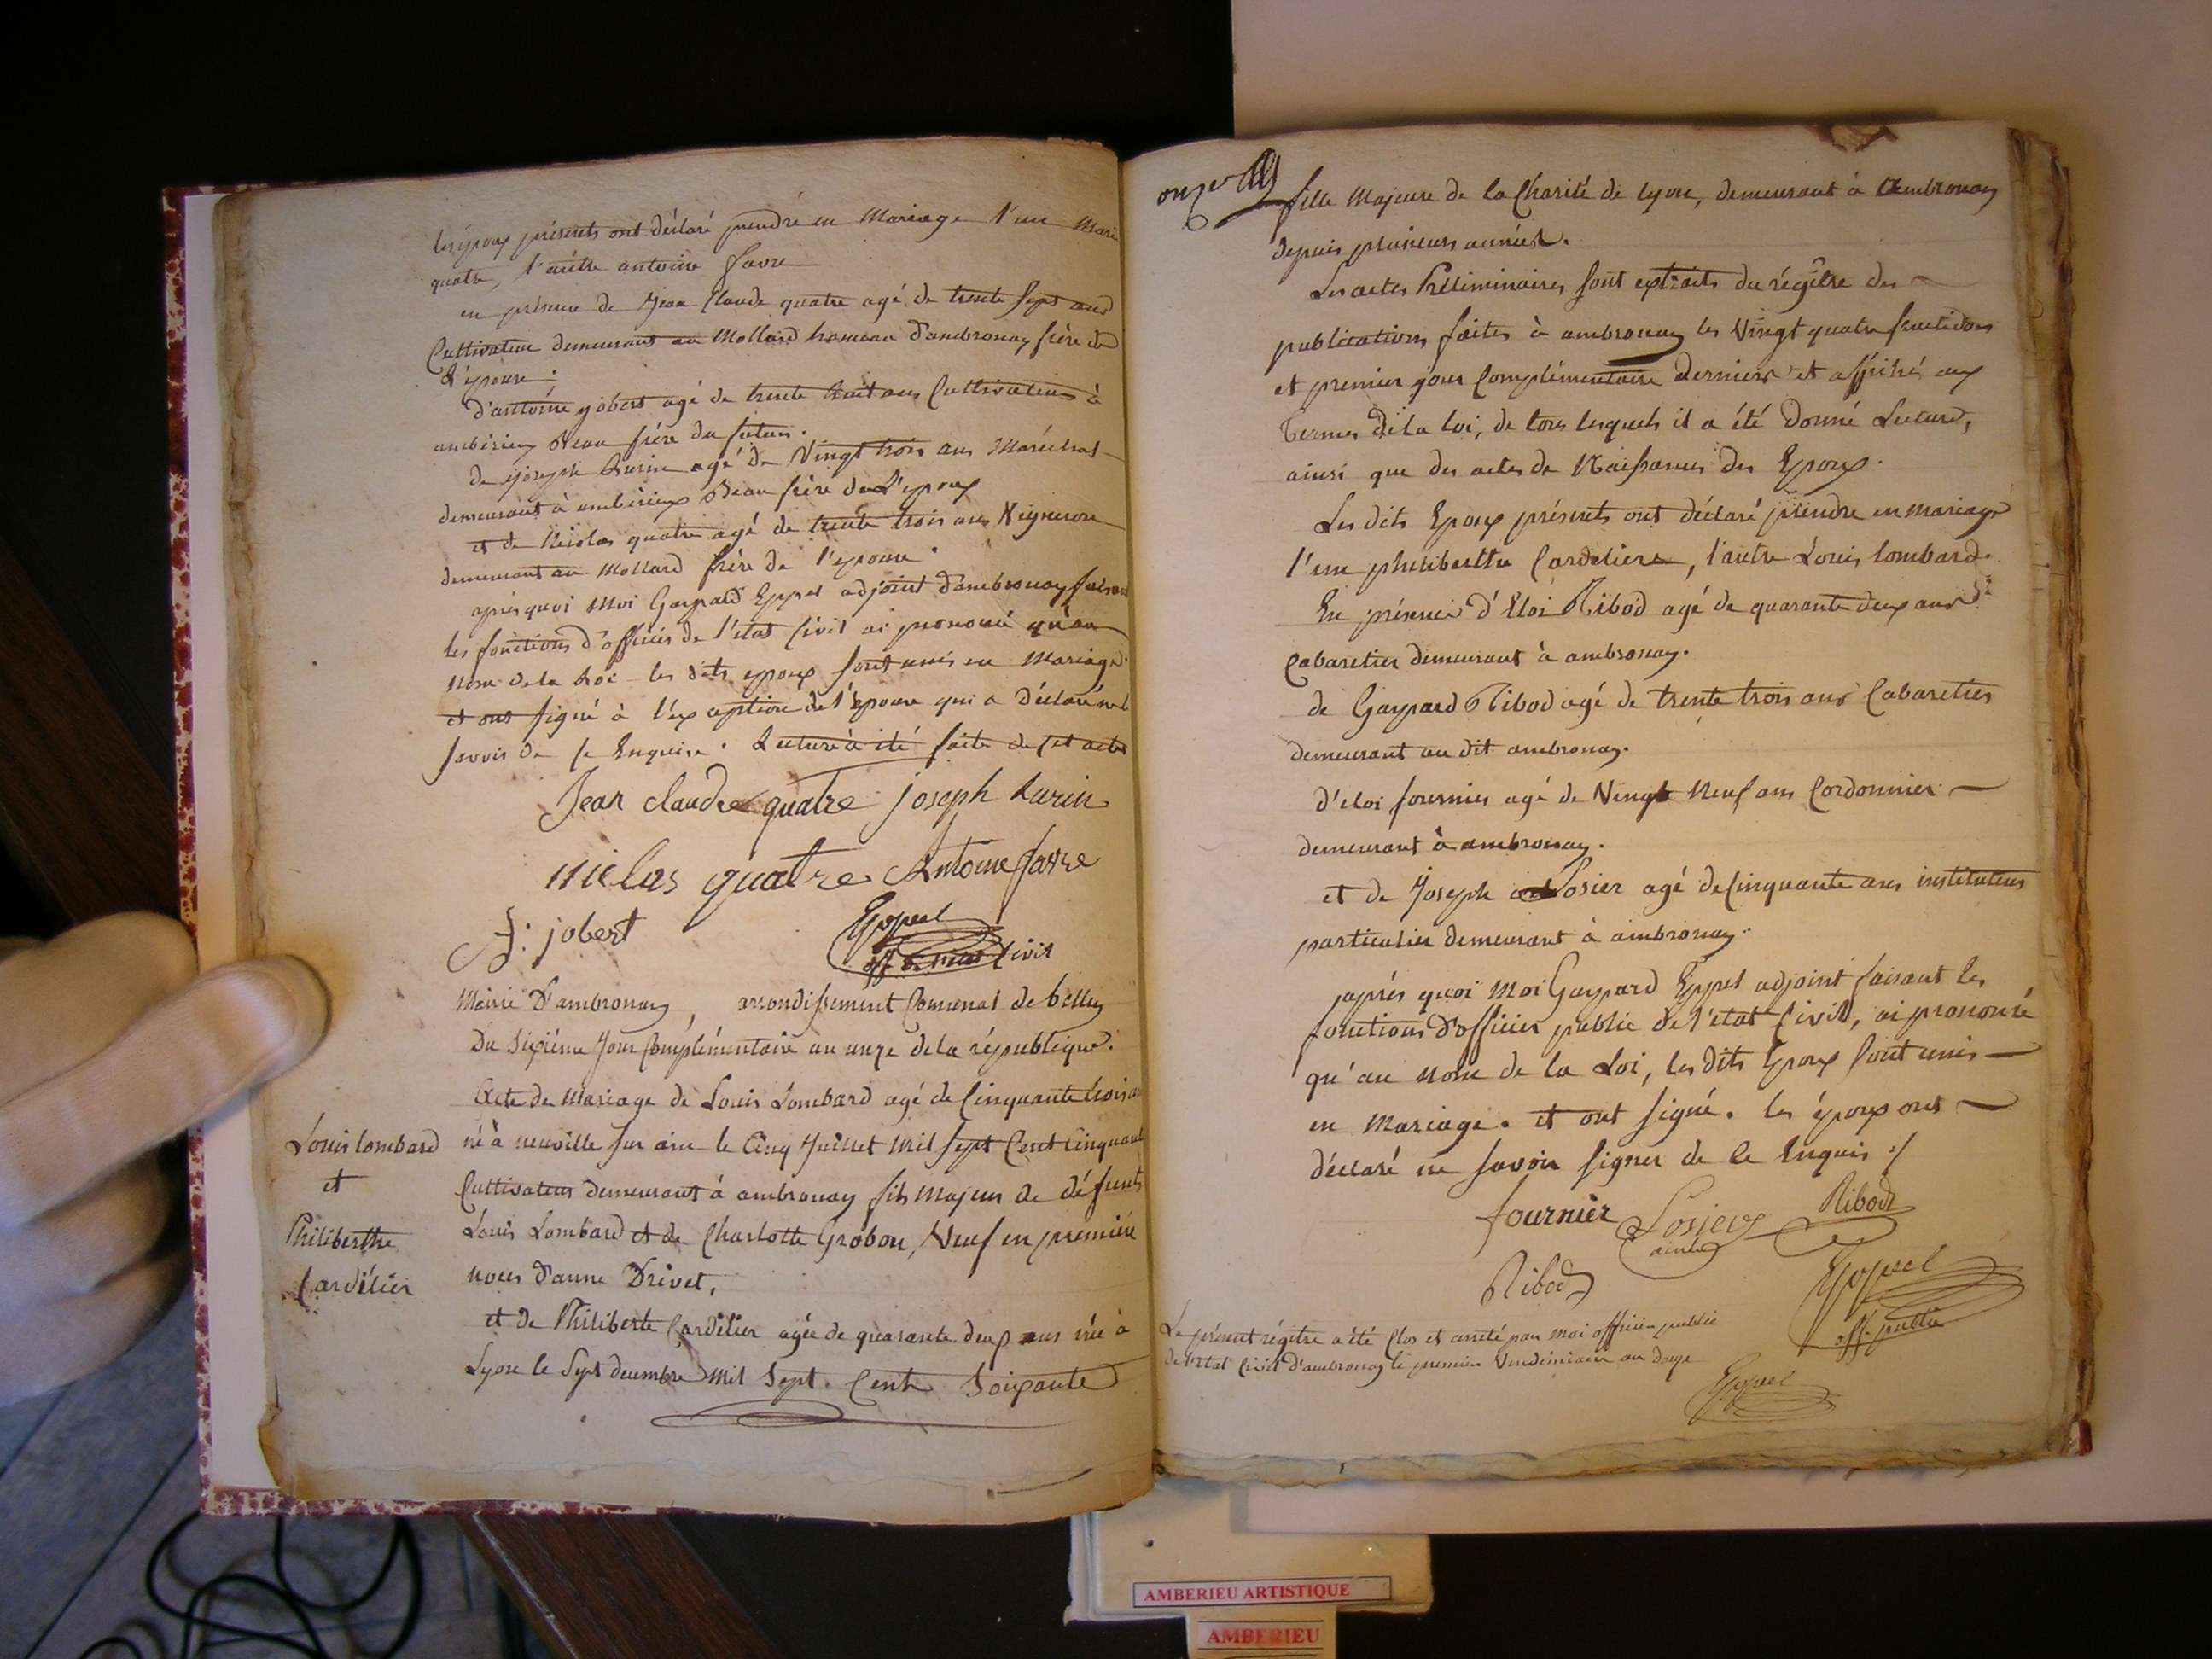 les époux présents ont déclaré prendre en Mariage l'une Marie
quatre, l'autre antoine favre
en présence de Jean Claude quatre agé de trente sept ans
Cultivateur demeurant au Mollard hameau d'ambronay frère de
L'épouse ;
d'antoine jobert agé de trente huit ans Cultivateur à
ambérieux Beau frère du futur.
de joseph Lurin agé de Vingt trois ans Maréchal
demeurant à ambérieux Beau frère de L'epoux
et de Nicolas quatre agé de trente trois ans Vigneron
demeurant au Mollard frère de l'epouse.
après quoi Moi Gaspard Eppel adjoint d'ambronay faisant
les fonctions d'officier de l'état Civil ai prononcé qu'au
Nom de la Loi les dits epoux sont unis en Mariage.
et ont signé à l'exception de l'épouse qui a déclaré ne
savoir de ce Enquise. Lecture à été faite de cet acte
Jean claude quatre joseph Lurin
nicolas quatre Antoine favre
A: jobert Eppel
off de l'état Civil
Mairie D'ambronay, arrondissement Comunal de belley
Du Sixième Jour Complémentaire an onze de la république.
Acte de Mariage de Louis Lombard agé de Cinquante trois ans
né à neuville sur ain le Cinq Juillet Mil sept Cent Cinquante
Cultivateur demeurant à ambronay fils Majeur de défunts
Louis Lombard et de Charlotte Grobon, Veuf en première
noces d'anne Drivet,
et de Philiberte Cardelier agée de quarante deux ans née à
Lyon le Sept decembre Mil Sept Cents Soixante
Louis lombard
et
Philiberthe
Cardélier
onze
fille Majeure de la Charité de lyon, demeurant à Ambronay
depuis plusieurs années.
Les actes Préliminaires sont extraits du régître des
publications faites à ambronay les Vingt quatre fructidor
et premier jour Complémentaire derniers et affiché aux
Termes de la loi, de tous lesquels il a été donné Lecture,
ainsi que des actes de Naissances des Epoux.
Les dits Epoux présents ont déclaré prendre en mariage
l'une philiberthe Cardeliere, l'autre Louis lombard.
En présence d'Eloi Ribod agé de quarante deux ans
Cabaretier demeurant à ambronay.
de Gaspard Ribod agé de trente trois ans Cabaretier
demeurant au dit ambronay.
d'eloi fournier agé de Vingt Neuf ans Cordonnier
demeurant à ambronay.
et de Joseph Losier agé de Cinquante ans instituteur
particulier demeurant à ambronay.
après quoi Moi Gaspard Eppel adjoint faisant les
fonctions d'officier public de l'état Civil, ai prononcé
qu'au nom de la Loi, les dits Epoux sont unis
en Mariage. et ont signé. les époux ont
déclaré ne savoir signer de ce Enquis ./
fournier Losier Ribod
ainé
Ribod Eppel
off. public
Le présent régitre a été Clos et arreté par Moi officier public
de l'état Civil d'ambronay le premier Vendémiaire an douze
Eppel
AMBERIEU ARTISTIQUE
AMBERIEU